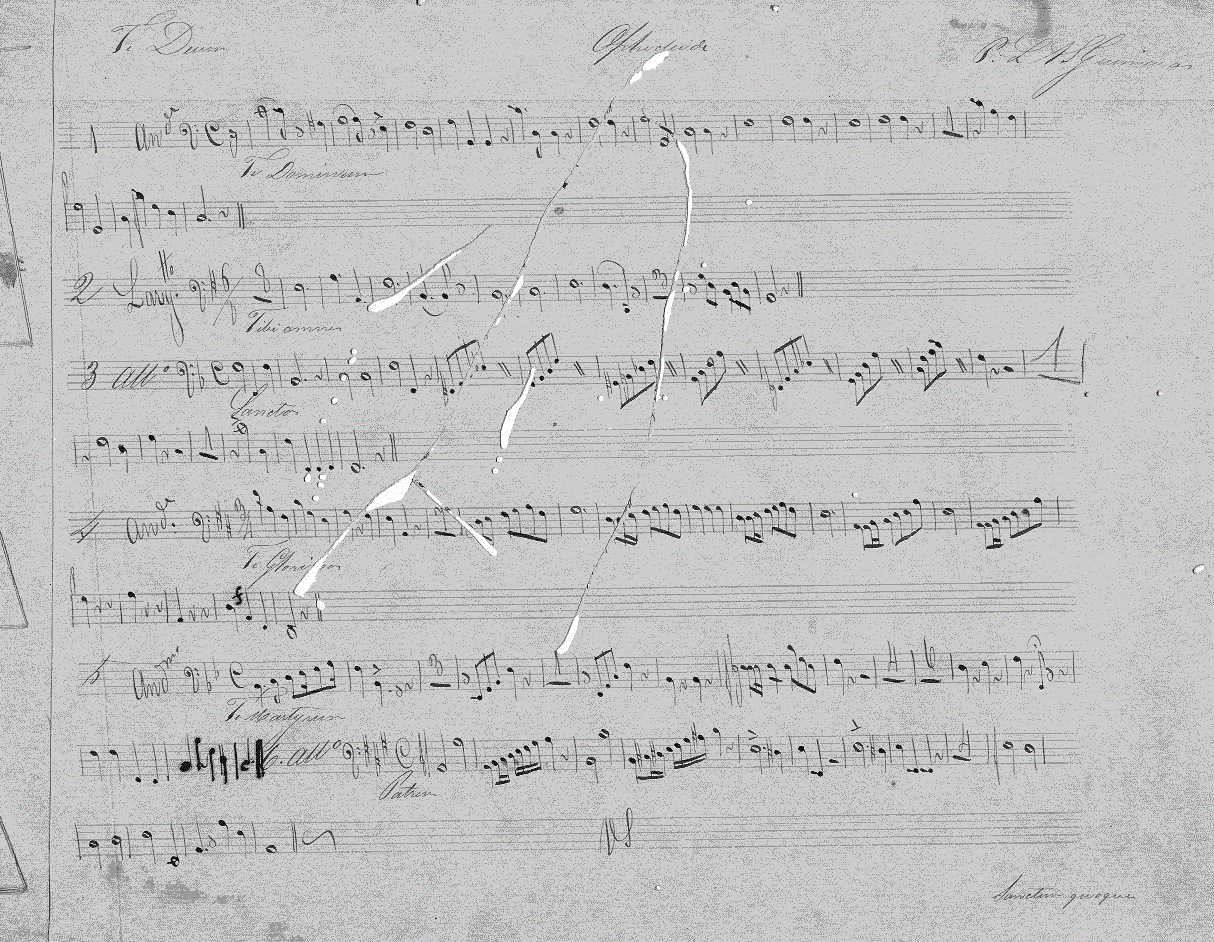 Te Deum Ophicleide P. L. A. S. Guimarães
1 And.e
Te Dominum
2 Larg.tto
Tibi omnes
3 All.o
Sanctus
4 And.e
Te Gloriosus
5 And.mo
Te Martyrum
6. All.o
Patrem
VS
Sanctum quoque